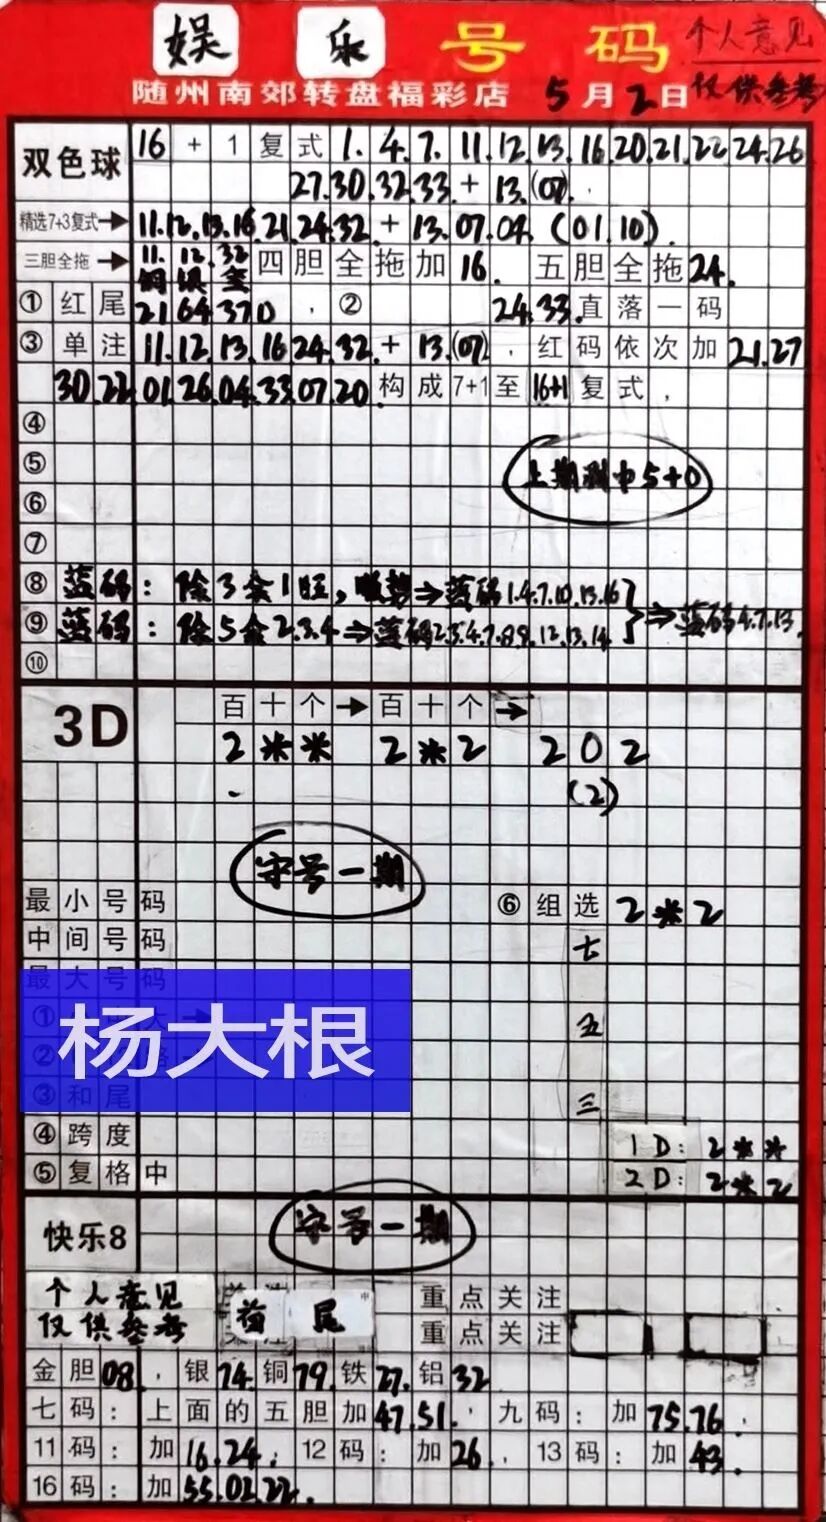 娱乐号码 个人意见
随州南郊转盘福彩店 5月2日 仅供参考
双色球 16+1复式 1.4.7.11.12.13.16.20.21.22.24.26
27.30.32.33+13.(07).
精选7+3复式→ 11.12.13.16.21.24.32+13.07.04.(01.10).
三胆全拖→ 11.12.32 四胆全拖加16.五胆全拖24.
① 红尾 2164370,② 24.33.直落一码
③ 单注 11.12.13.16.24.32.+13.(07),红码依次加21.27
30.22.01.26.04.33.07.20.构成7+1至16+1复式,
④
⑤ 上期测中5+0
⑥
⑦
⑧ 蓝码:除3余1旺,顺势→蓝码1.4.7.10.13.16
⑨ 蓝码:除5余2.3.4→蓝码2.3.4.7.8.9.12.13.14 ⇒蓝码4.7.13.
⑩
3D 百十个→百十个→
2** 2*2 202
(2)
守号一期
最小号码 ⑥组选 2*2
中间号码 七
最大号码
① 五
杨大根
②
③和尾 三
④跨度 1D:2**
⑤复格中 2D:2*2
快乐8 守号一期
个人意见 重点关注
仅供参考 首尾 重点关注
金胆08,银74.铜79.铁27.铝32
七码:上面的五胆加47.51.,九码:加75.76,
11码:加16.24;12码:加26,13码:加43.
16码:加55.02.22.